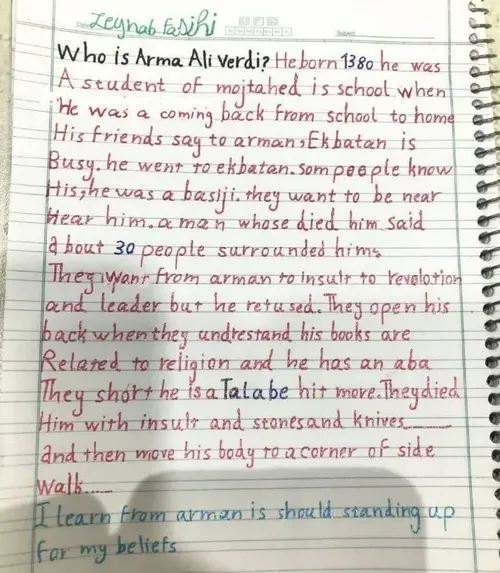 Zeynab Fasihi
Who is Arma Ali verdi? He born 1380 he was
A student of mojtahed is school when
He was a coming back from school to home
His friends say to arman, Ekbatan is
Busy. he went to ekbatan. som people know
His, he was a basiji. they want to be near
Hear him. a man whose died him said
about 30 people surrounded hims
They want from arman to insult to revolotion
and leader but he refused. They open his
back when they undrestand his books are
Related to religion and he has an aba
They short he is a Talabe hit more. They died
Him with insult and stones and knives........
and then move his body to a corner of side
walk......
I learn from arman is should standing up
for my beliefs